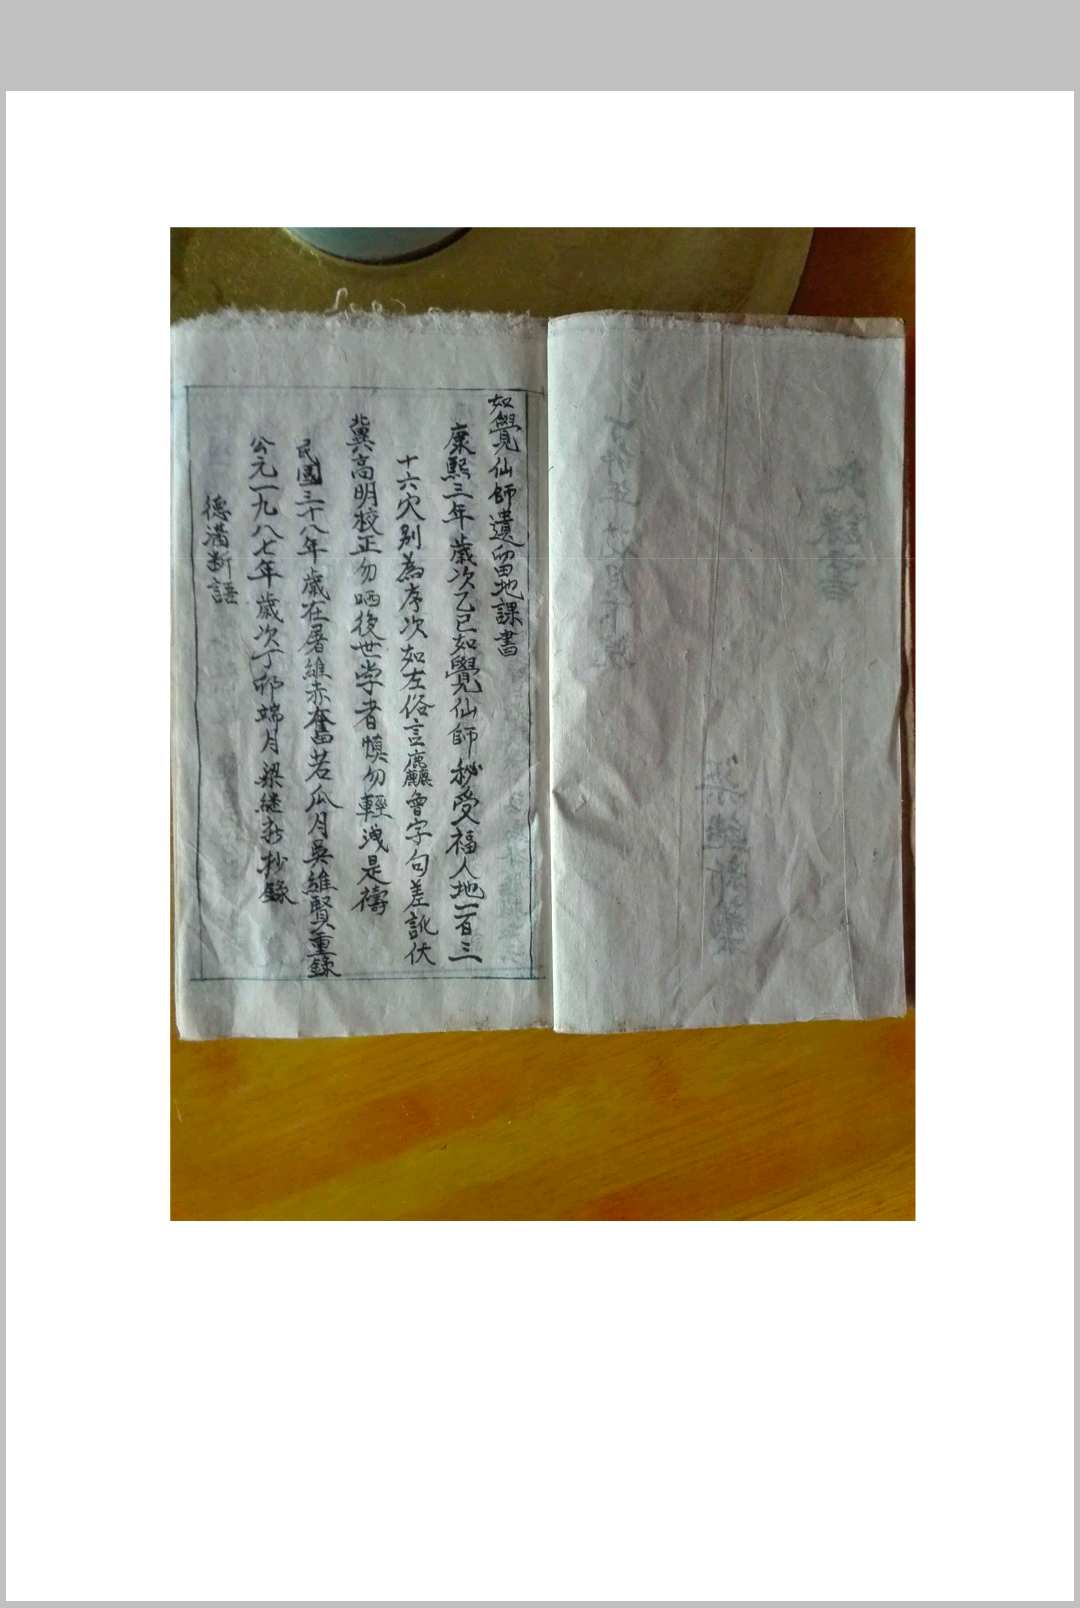 如覺仙師遺留地課書
康熙三年歲次乙巳如覺仙師秘受福人地一百三
十六穴别為序次如左俗言麤魯字句差訛伏
冀高明校正勿哂後世学者慎勿輕洩是禱
民國三十八年歲在屠維赤奮若瓜月吳維賢重錄
公元一九八七年歲次丁卯端月梁継新抄錄
德滿断語